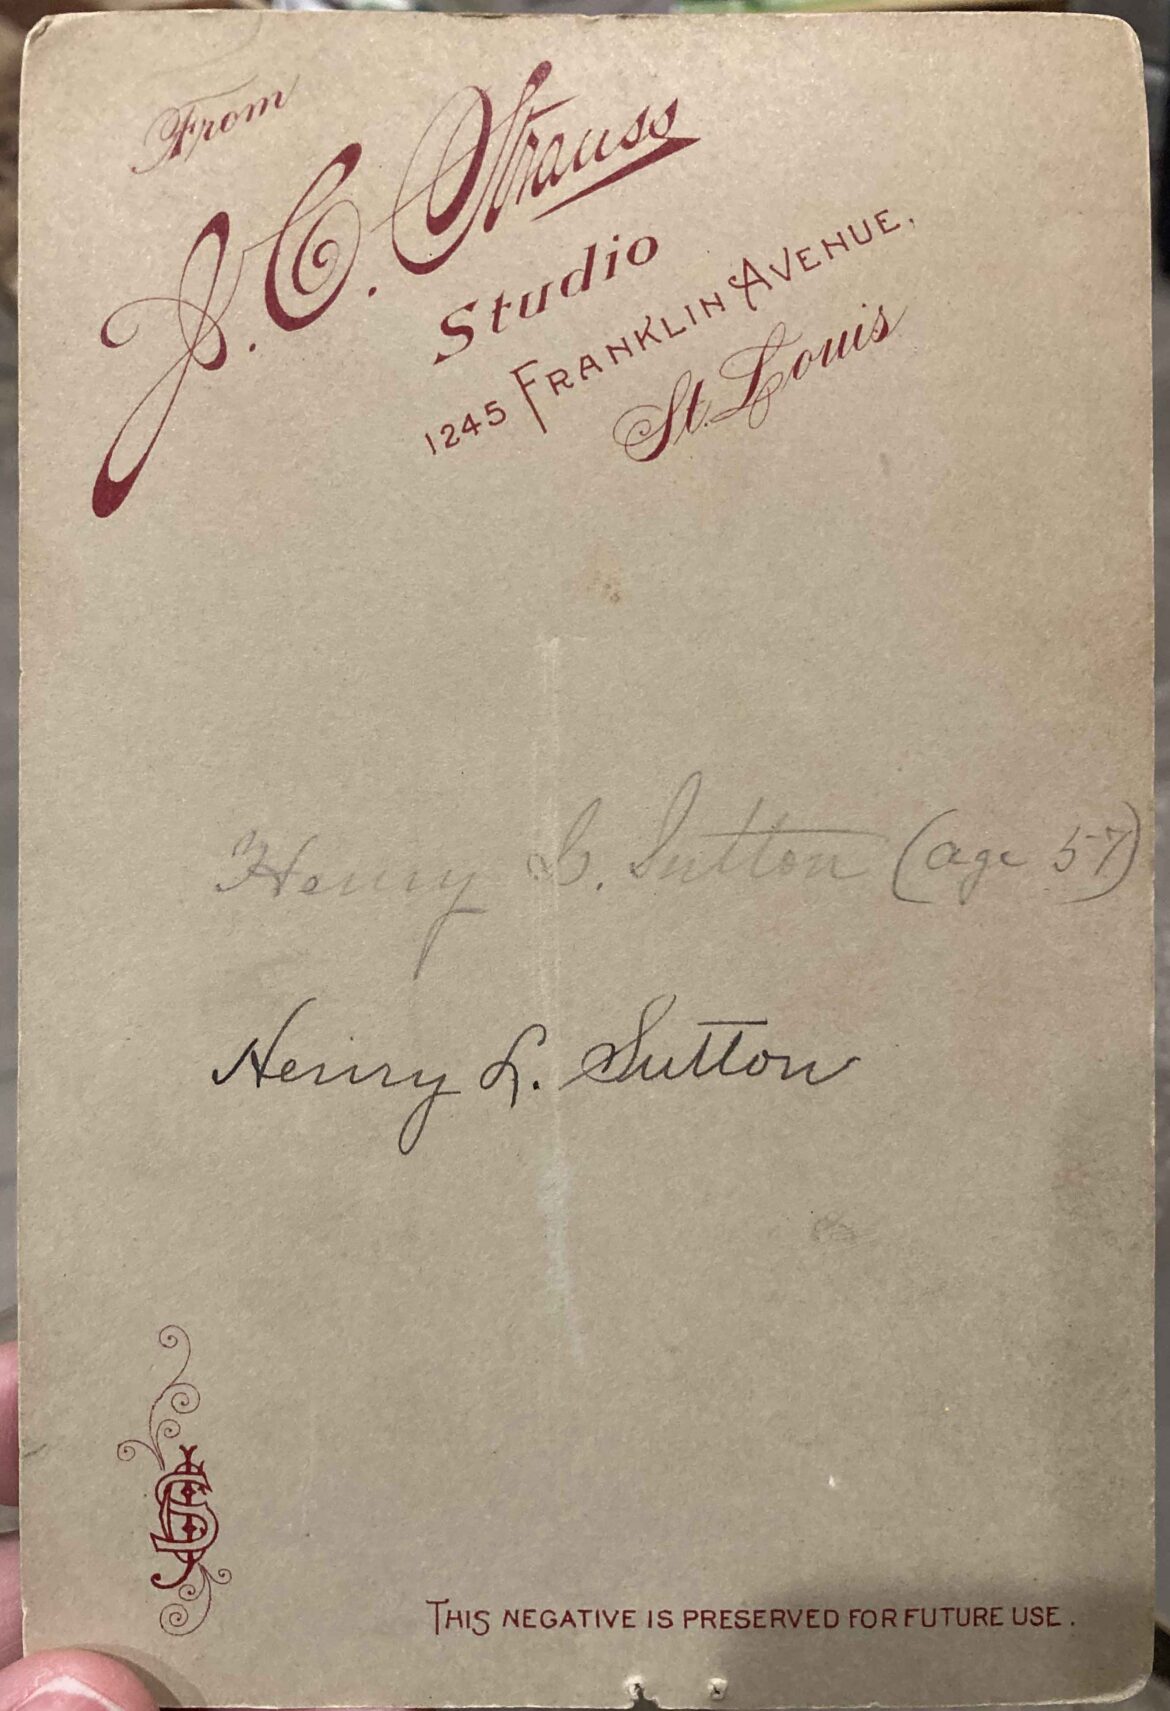 From
J. C. Strauss
Studio
1245 FRANKLIN AVENUE.
St. Louis
Henry L. Sutton (age 57)
Henry L. Sutton
JCS
THIS NEGATIVE IS PRESERVED FOR FUTURE USE.